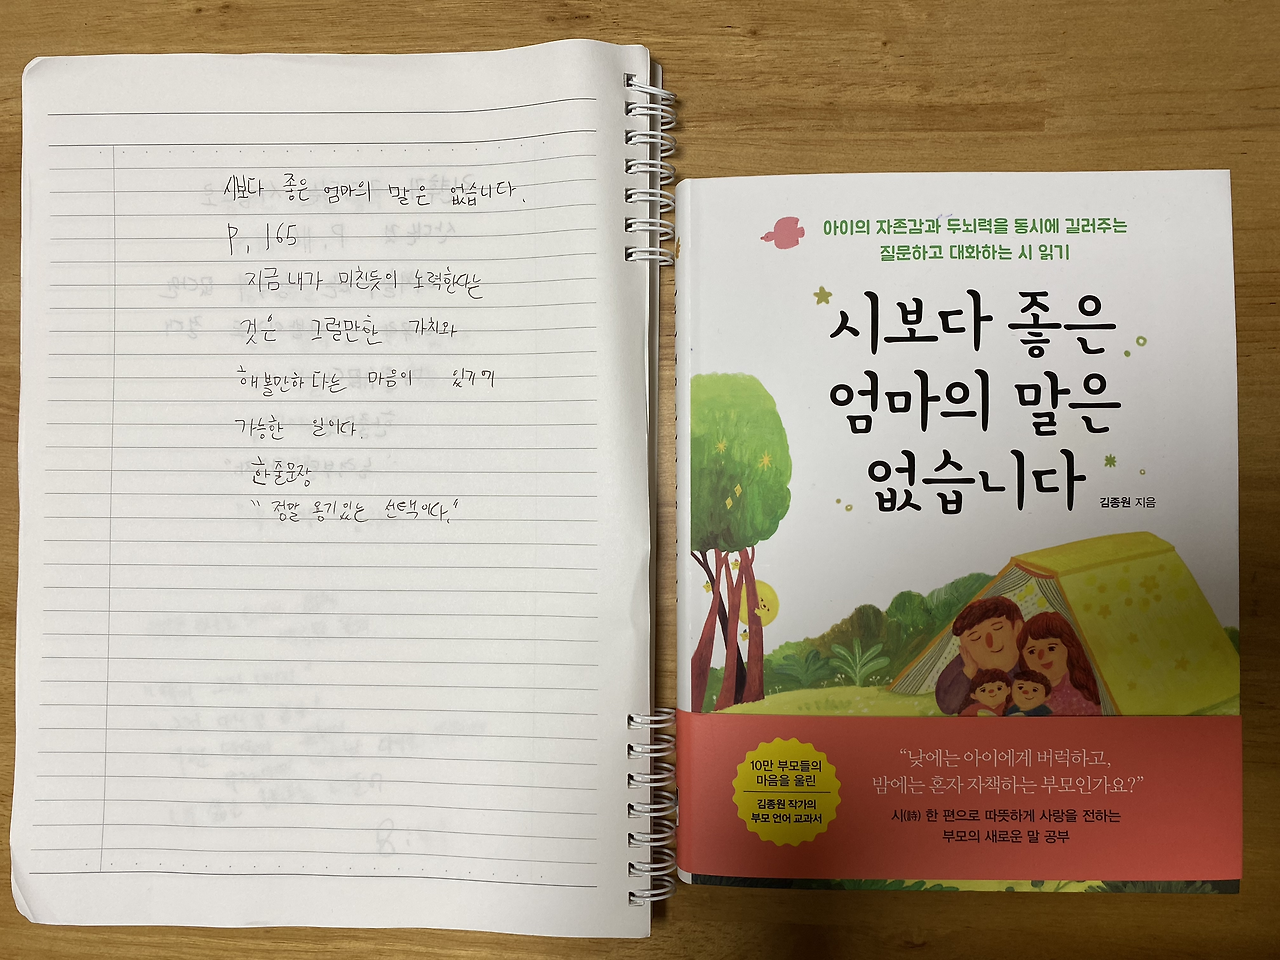 시보다 좋은 엄마의 말은 없습니다.
P. 165
지금 내가 미친듯이 노력한다는
것은 그럴만한 가치와
해볼만하다는 마음이 있기에
가능한 일이다.
한줄문장
"정말 용기있는 선택이다."
아이의 자존감과 두뇌력을 동시에 길러주는
질문하고 대화하는 시 읽기
시보다 좋은
엄마의 말은
없습니다
김종원 지음
10만 부모들의
마음을 울린
김종원 작가의
부모 언어 교과서
“낮에는 아이에게 버럭하고,
밤에는 혼자 자책하는 부모인가요?”
시(詩) 한 편으로 따뜻하게 사랑을 전하는
부모의 새로운 말 공부